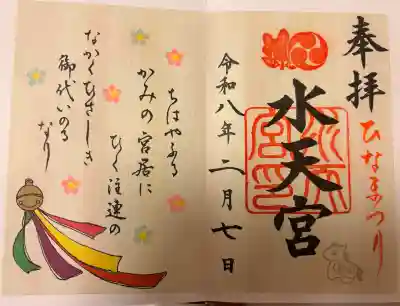 奉拝
ひなまつり
水天宮
令和八年二月七日
ちはやふる
かみの宮居に
ひく注連の
なかくひさしき
御代いのる
なり